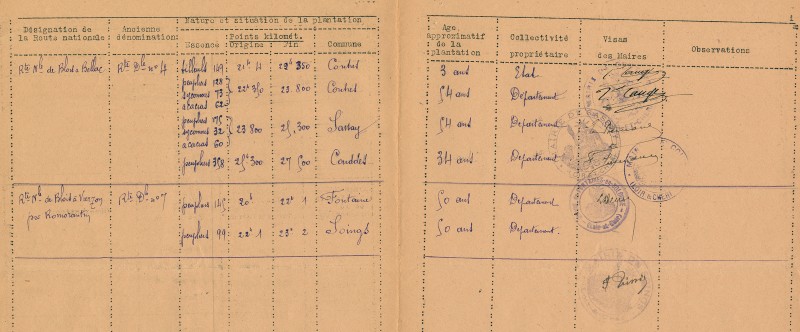 Désignation de la Route nationale
Ancienne dénomination
Nature et situation de la plantation
Essence
Points kilomét.
Origine
Fin
Commune
Age approximatif de la plantation
Collectivité propriétaire
Visas des Maires
Observations
Rte Nle de Blois à Bellac Rte Dle n° 4 tilleuls 149 21k 4 22k 350 Contres 3 ans Etat
peupliers 128
sycomores 73 22k 350 23.800 Contres 54 ans Département
acacias 62
peupliers 175
sycomores 32 23.800 25,300 Sassay 54 ans Département
acacias 60
peupliers 358 25k 300 27 500 Couddes 34 ans Département
Rte Nle de Blois à Vierzon Rte Dle n° 7 peupliers 145 20k 22k 1 Fontaine 50 ans Département
par Romorantin
peupliers 99 22k 1 23k 2 Soings 50 ans Département